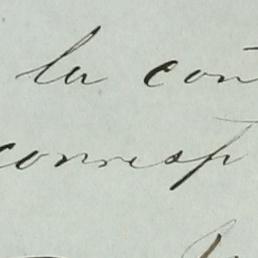 la con
corresp